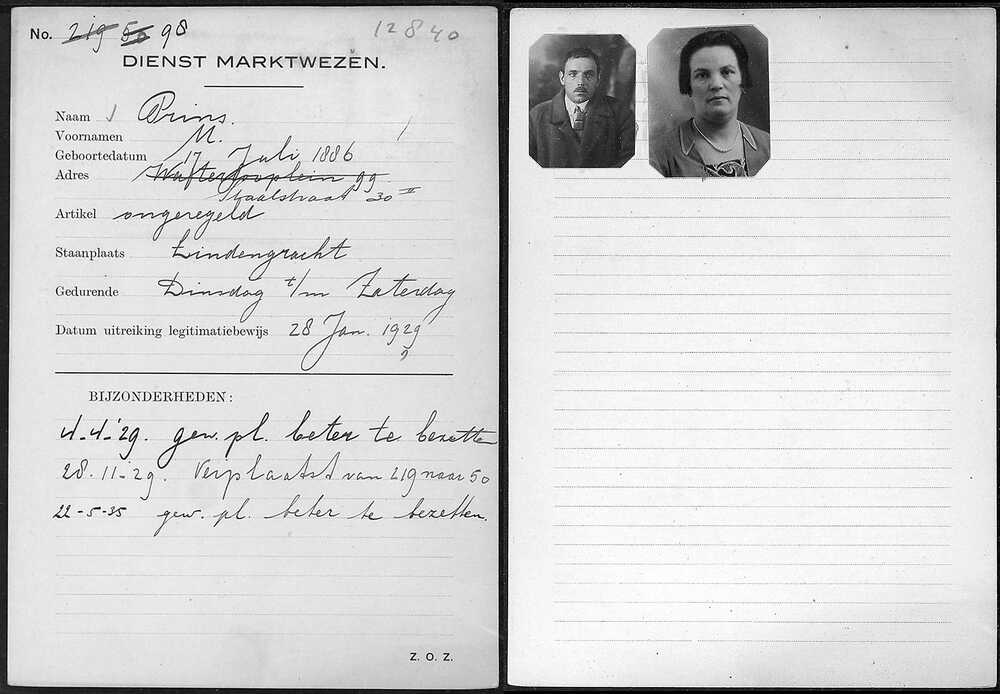 No. 219 50 98 12840
DIENST MARKTWEZEN.
Naam Prins.
Voornamen M.
Geboortedatum 17 Juli 1886
Adres Waterlooplein 99
Staalstraat 30 II
Artikel ongeregeld
Staanplaats Lindengracht
Gedurende Dinsdag t/m Zaterdag
Datum uitreiking legitimatiebewijs 28 Jan. 1929
BIJZONDERHEDEN:
4-4-'29. gew. pl. beter te bezetten
28-11-'29. Verplaatst van 219 naar 50
22-5-35 gew. pl. beter te bezetten.
Z. O. Z.